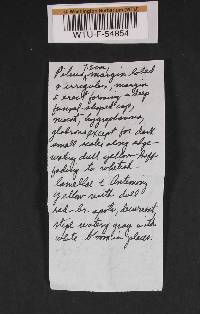 U Washington Herbarium (WTU)
WTU-F-54854
7 cm,
Pileus, margin lobed
& irregular, margin
& erect forming a deep
funnel-shaped cap,
moist, hygrophanous,
glabrous except for dark
small scales along edge
dull yellow-buff
fading to
Lamellae & Antimony
yellow with dull
red-br. spots, decurrent,
stipe watery gray with
white bloom in places.